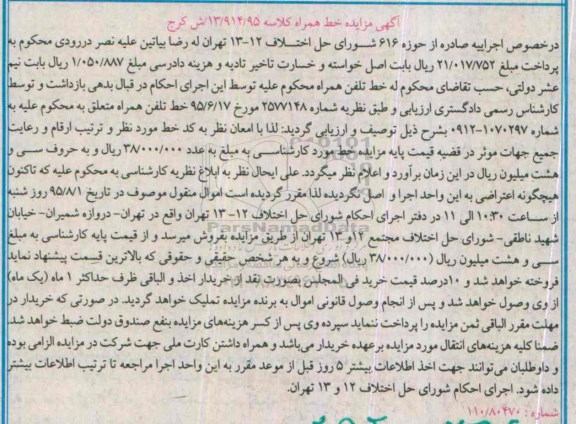 آگهی مزایده خط همراه کلاسه ۱۳/۹۱۴/۹۵/ش کرج
درخصوص اجراییه صادره از حوزه ۶۱۶ شـورای حل اختـلاف ۱۲-۱۳ تهران له رضا بیاتین علیه نصر دررودی محکوم به
پرداخت مبلغ ۲۱/۰۱۷/۷۵۲ ریال بابت اصل خواسته و خسارت تاخیر تادیه و هزینه دادرسی مبلغ ۱/۰۵۰/۸۸۷ ریال بابت نیم
عشر دولتی، حسب تقاضای محکوم له خط تلفن همراه محکوم علیه توسط این اجرای احکام در قبال بدهی بازداشت و توسط
کارشناس رسمی دادگستری ارزیابی و طبق نظریه شماره ۲۵۷۷۱۴۸ مورخ ۹۵/۶/۱۷ خط تلفن همراه متعلق به محکوم علیه به
شماره ۱۰۷۰۲۹۷-۰۹۱۲ بشرح ذیل توصیف و ارزیابی گردید: لذا با امعان نظر به کد خط مورد نظر و ترتیب ارقام و رعایت
جمیع جهات موثر در قضیه قیمت پایه مزایده خط مورد کارشناسـی به مبلغ به عدد ۳۸/۰۰۰/۰۰۰ ریال و به حروف سـی و
هشت میلیون ریال در این زمان برآورد و اعلام نظر میگردد. علی ایحال نظر به ابلاغ نظریه کارشناسی به محکوم علیه که تاکنون
هیچگونه اعتراضی به این واحد اجرا و اصل نگردیده لذا مقرر گردیده است اموال منقول موصوف در تاریخ ۹۵/۸/۱ روز شنبه
از سـاعت ۱۰:۳۰ الی ۱۱ در دفتر اجرای احکام شورای حل اختلاف ۱۲-۱۳ تهران واقع در تهران- دروازه شمیران- خیابان
شهید ناطقی- شورای حل اختلاف مجتمع ۱۲و۱۳ تهران از طریق مزایده بفروش میرسد و از قیمت پایه کارشناسی به مبلغ
سـی و هشت میلیون ریال (۳۸/۰۰۰/۰۰۰ ریال) شروع و به هر شخص حقیقی و حقوقی که بالاترین قسمت پیشنهاد نماید
فروخته خواهد شد و ۱۰درصد قیمت خرید فی المجلس بصورت نقد از خریدار اخذ و الباقی ظرف حداکثر ۱ ماه (یک ماه)
از وی وصول خواهد شد و پس از انجام وصول قانونی اموال به برنده مزایده تملیک خواهد گردید. در صورتی که خریدار در
مهلت مقرر الباقی ثمن مزایده را پرداخت ننماید سپرده وی پس از کسر هزینه‌های مزایده بنفع صندوق دولت ضبط خواهد شد.
ضمنا کلیه هزینه‌های انتقال مورد مزایده برعهده خریدار می‌باشد و همراه داشتن کارت ملی جهت شرکت در مزایده الزامی بوده
و داوطلبان می‌توانند جهت اخذ اطلاعات بیشتر ۵ روز قبل از موعد مقرر به این واحد اجرا مراجعه تا ترتیب اطلاعات بیشتر
داده شود. اجرای احکام شورای حل اختلاف ۱۲ و ۱۳ تهران.
شماره: ۱۱۰/۸۰۴۷۰